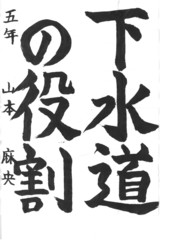 下水道
の役割
五年 山本 麻央